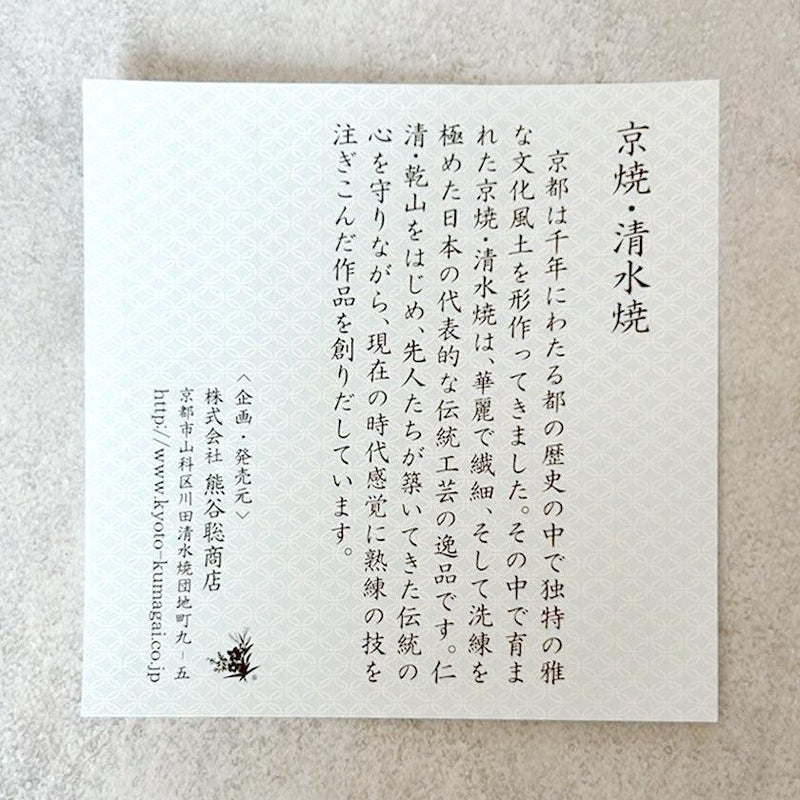 京焼・清水焼
京都は千年にわたる都の歴史の中で独特の雅
な文化風土を形作ってきました。その中で育ま
れた京焼・清水焼は、華麗で繊細、そして洗練を
極めた日本の代表的な伝統工芸の逸品です。仁
清・乾山をはじめ、先人たちが築いてきた伝統の
心を守りながら、現在の時代感覚に熟練の技を
注ぎこんだ作品を創りだしています。
〈企画・発売元〉
株式会社 熊谷聡商店
京都市山科区川田清水焼団地町九-五
http://www.kyoto-kumagai.co.jp